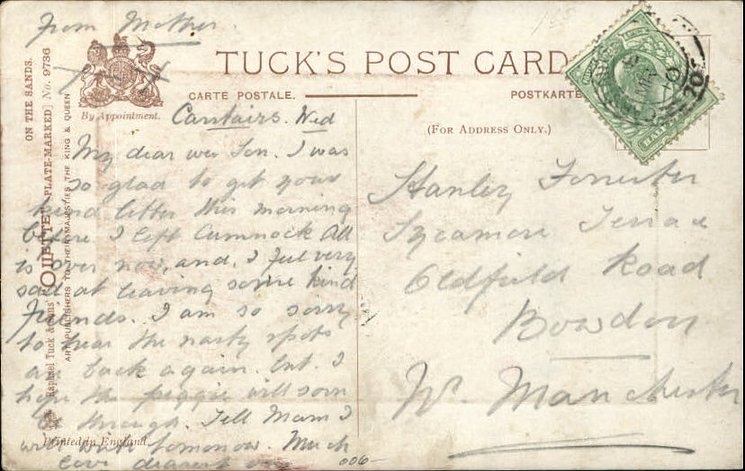 From Mother
TUCK'S POST CARD
CARTE POSTALE.
POSTKARTE
By Appointment.
(FOR ADDRESS ONLY.)
ON THE SANDS.
"OILETTE" [PLATE-MARKED] No. 9736
Raphael Tuck & Sons'
ART PUBLISHERS TO THEIR MAJESTIES THE KING & QUEEN
Printed in England.
Carstairs. Wed
My dear wee Son. I was
so glad to get your
kind letter this morning
before I left Cumnock All
is over now, and, I feel very
sad at leaving some kind
Friends. I am so sorry
to hear the nasty spots
are back again. but. I
hope the piggie will soon
be through. Tell Mam I
will write tomorrow. Much
love dearest
006-
Stanley Forrester
Sycamore Terrace
Oldfield Road
Bowdon
Nr. Manchester